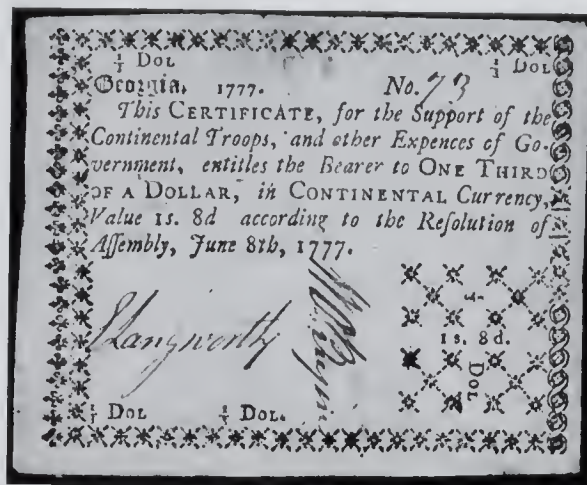 ⅓ DOL ⅓ DOL
Georgia, 1777. No. 73
This CERTIFICATE, for the Support of the
Continental Troops, and other Expences of Go-
vernment, entitles the Bearer to ONE THIRD
OF A DOLLAR, in CONTINENTAL Currency,
Value 1s. 8d according to the Reſolution of
Aſſembly, June 8th, 1777.
ELangworthy
1s. 8d.
DOL
⅓ DOL ⅓ DOL.